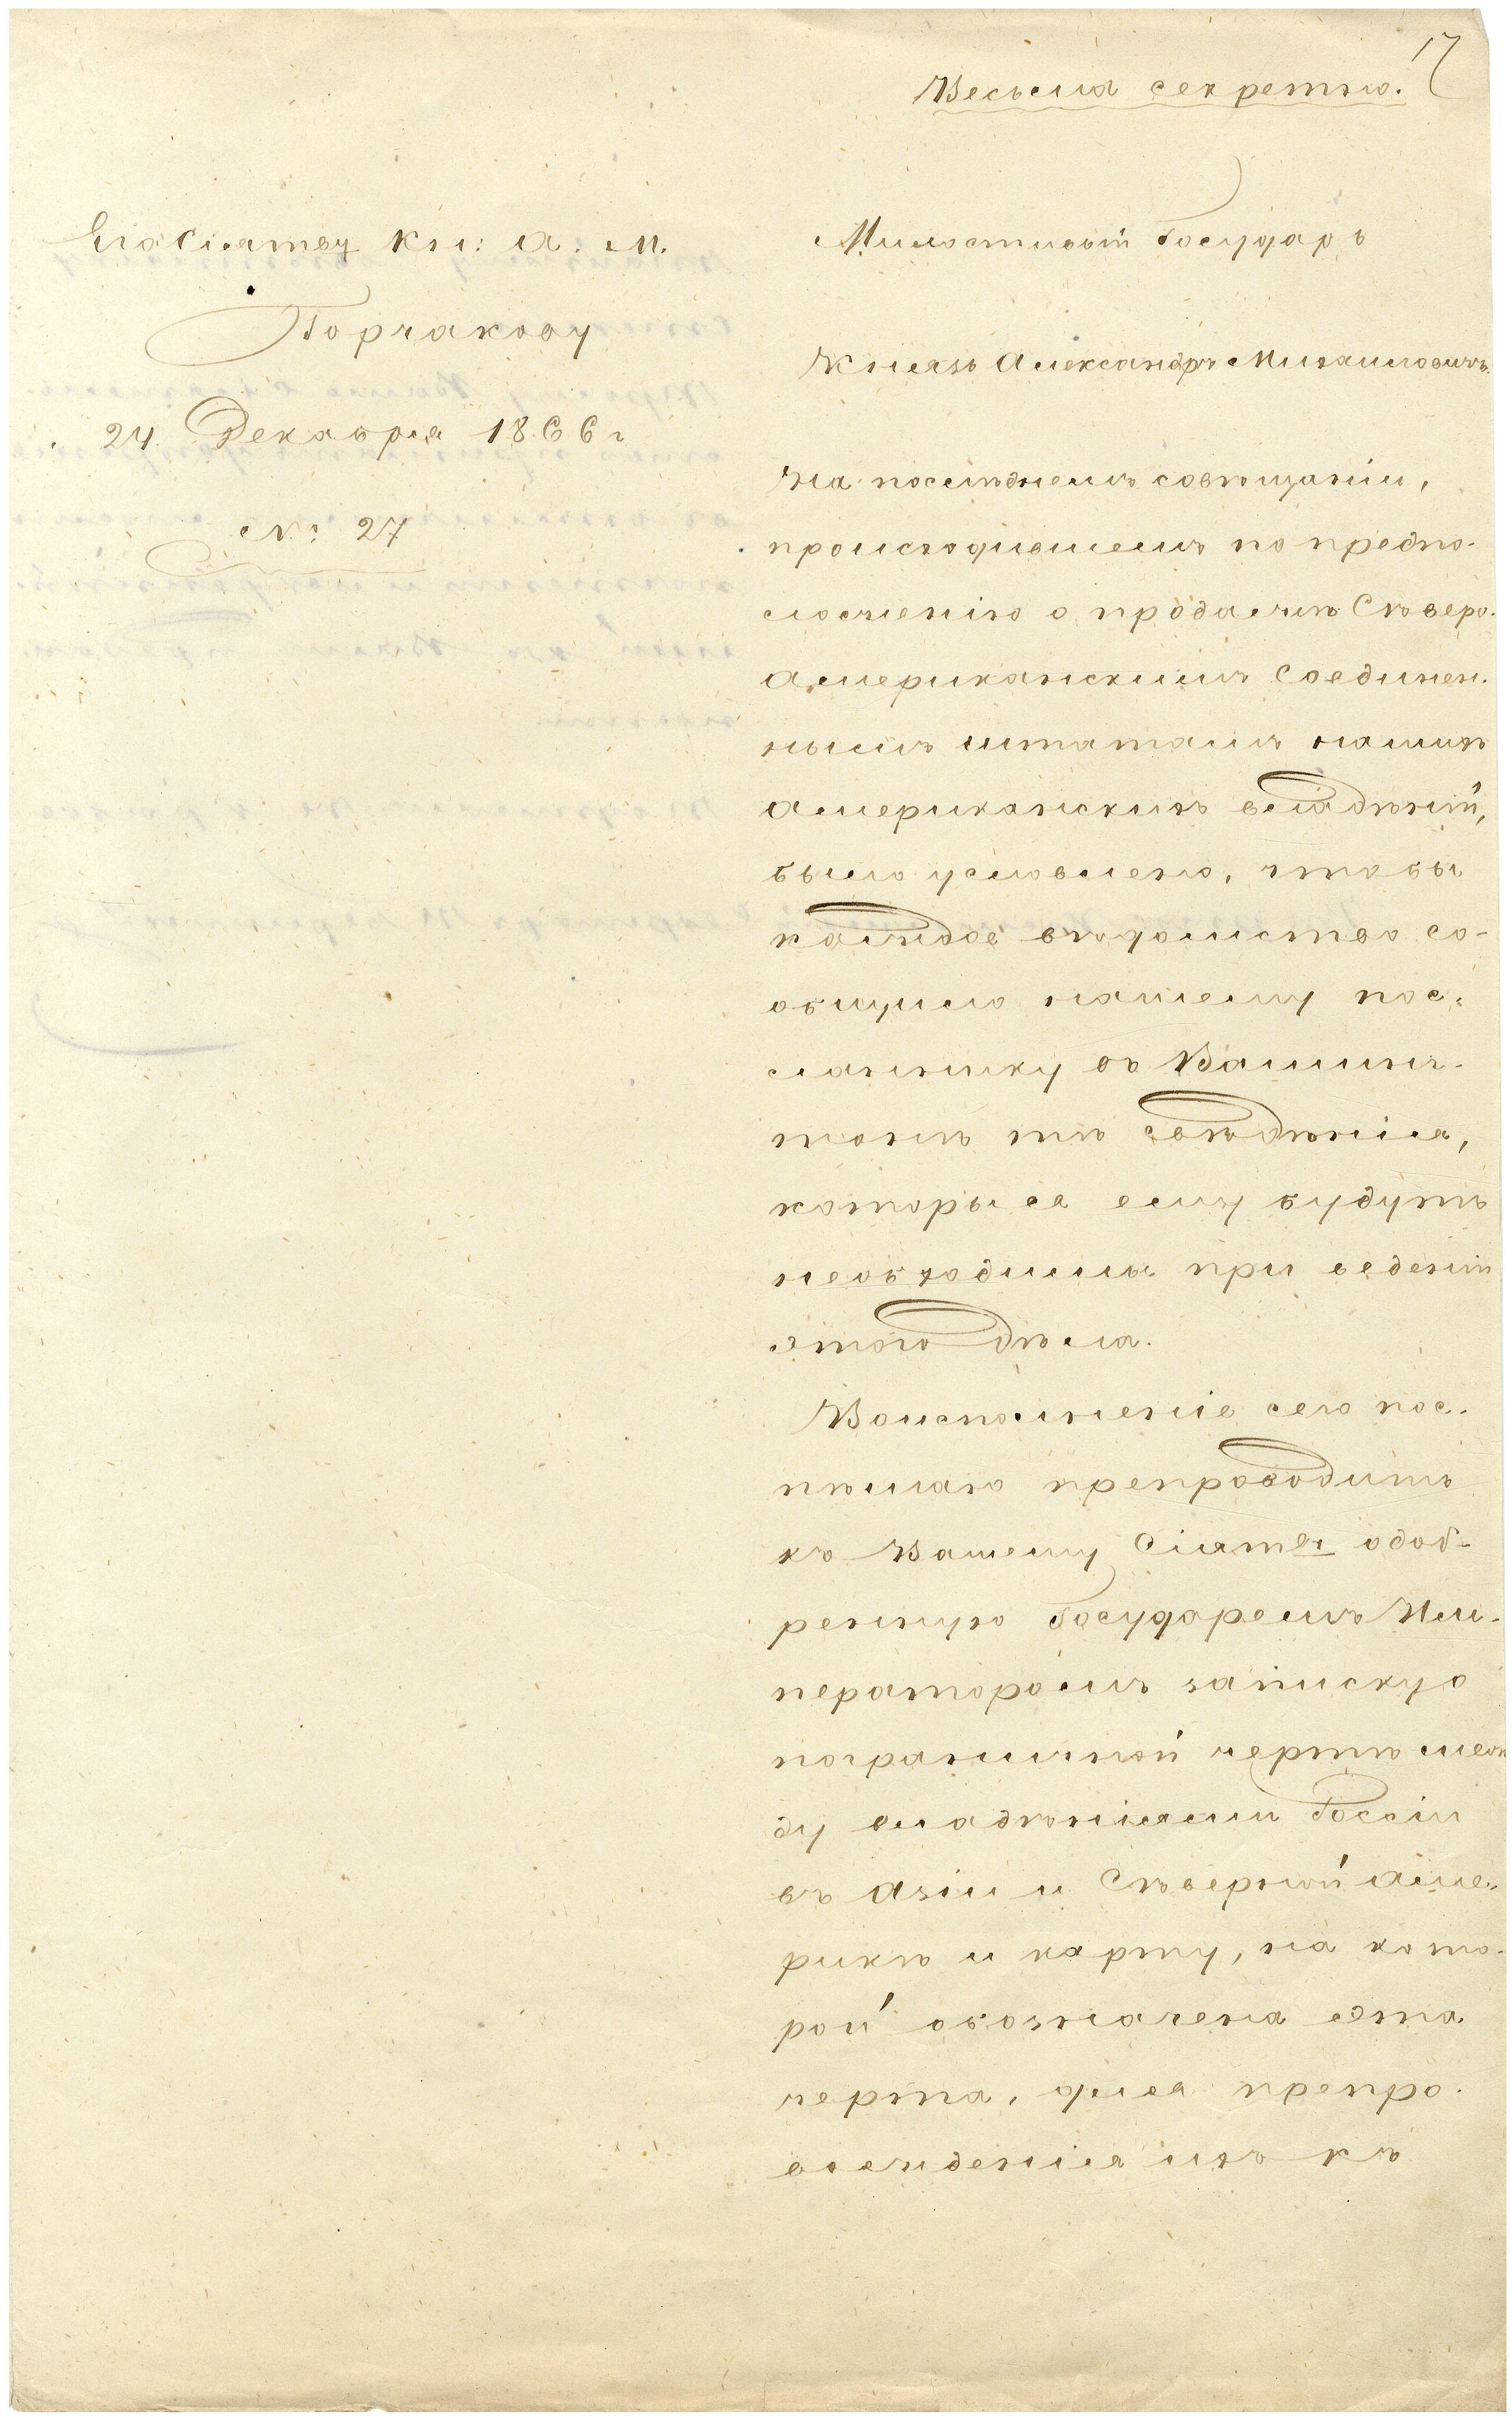 17
Весьма секретно.
Его Сіятву Кн: А. М.
Горчакову
24. Декабря 1866 г
№: 27
Милостивый Государь
Князь Александръ Михаиловичъ.
На послѣднемъ совѣщаніи,
происходившемъ по предпо-
ложенію о продажѣ Сѣверо-
американскимъ Соединен-
нымъ штатамъ нашихъ
американскихъ владѣній,
было условлено, чтобы
каждое вѣдомство со-
общило нашему пос-
ланнику въ Вашинг-
тонѣ тѣ свѣдѣнія,
которыя ему будутъ
необходимы при веденіи
этого дѣла.
Во исполненіе сего пос-
пѣшаю препроводить
къ Вашему Сіятву одоб-
ренную Государемъ Им-
ператоромъ записку о
пограничной чертѣ меж
ду владѣніями Россіи
въ Азіи и Сѣверной Аме-
рикѣ и карту, на кото-
рой обозначена эта
черта, для препро-
вожденія ихъ къ